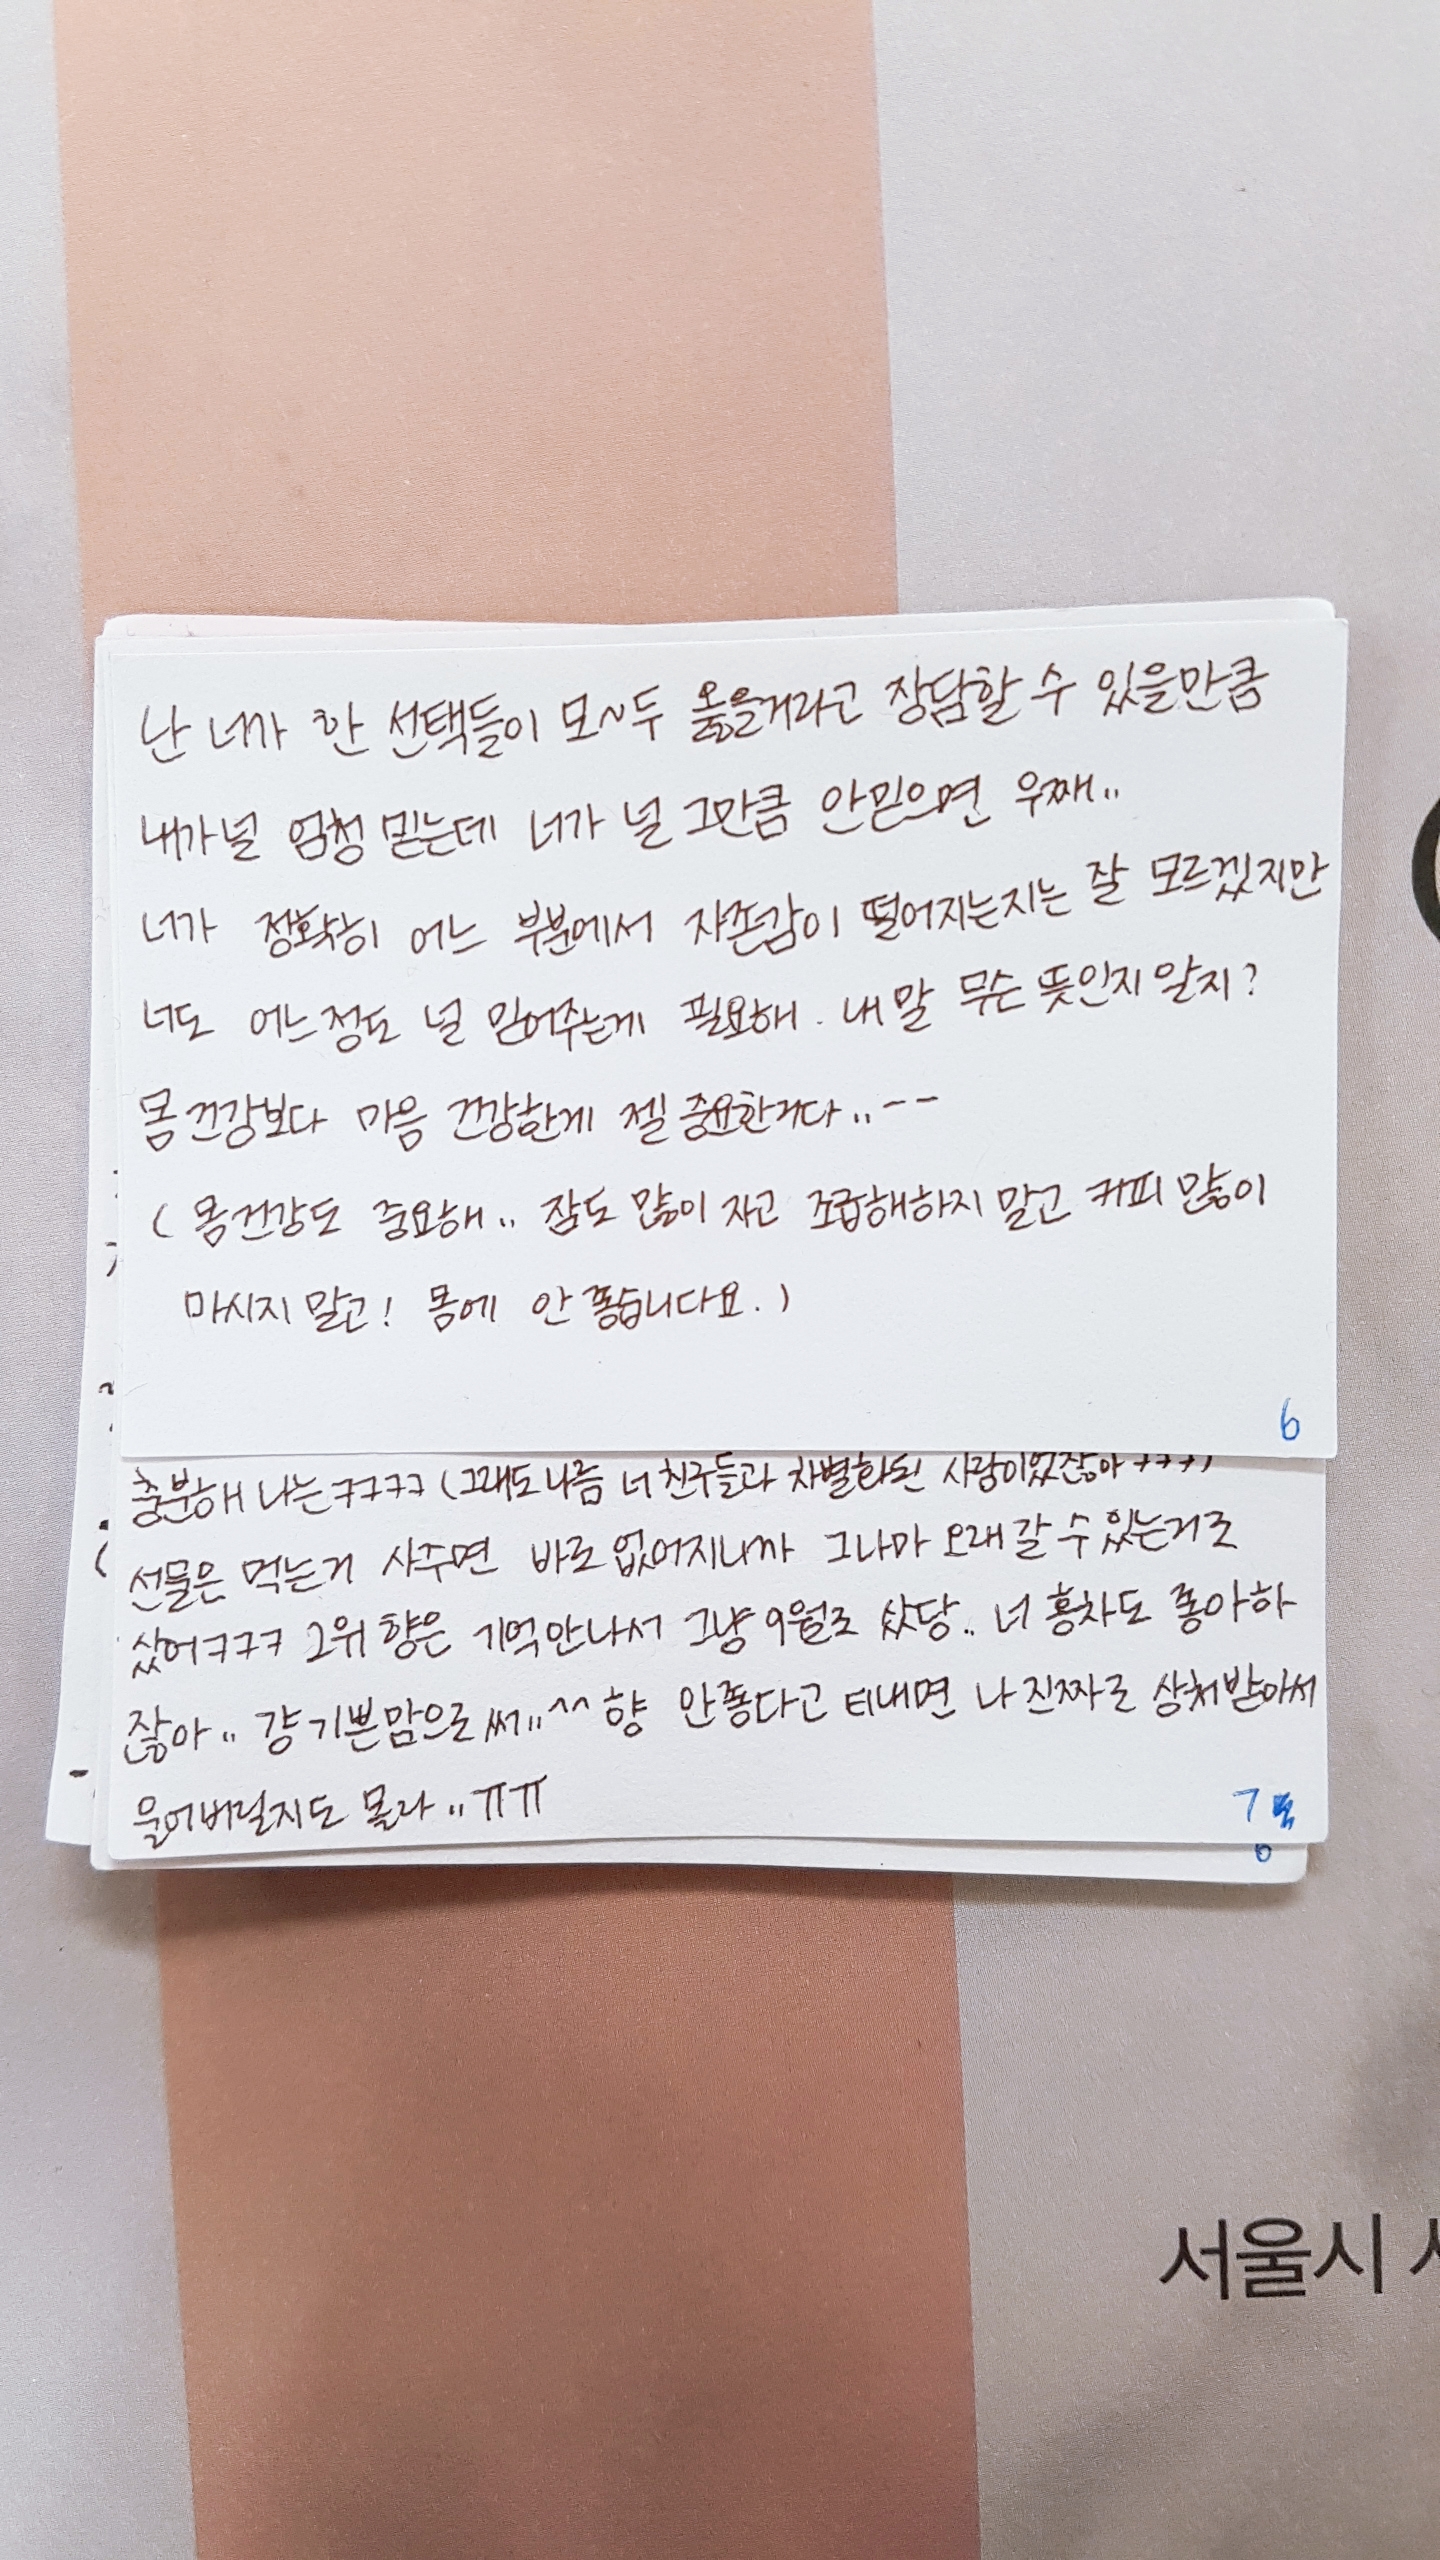 난 너가 한 선택들이 모~두 옳을거라고 장담할 수 있을만큼
내가 널 엄청 믿는데 너가 널 그만큼 안믿으면 우째..
너가 정확히 어느 부분에서 자존감이 떨어지는지는 잘 모르겠지만
너도 어느정도 널 믿어주는게 필요해. 내 말 무슨 뜻인지 알지?
몸 건강보다 마음 건강한게 젤 중요한거다..--
( 몸건강도 중요해.. 잠도 많이 자고 조급해하지 말고 커피 많이
마시지 말고! 몸에 안 좋습니다요.)
6
충분해 나는ㅋㅋㅋㅋ (그래도 나름 너 친구들과 차별화된 사랑이었잖아ㅋㅋㅋ)
선물은 먹는거 사주면 바로 없어지니까 그나마 오래갈 수 있는거로
샀어ㅋㅋㅋ 2위 향은 기억안나서 그냥 9월로 샀당.. 너 홍차도 좋아하
잖아.. 걍 기쁜맘으로 써..^^ 향 안좋다고 티내면 나 진짜로 상처받아서
울어버릴지도 몰라..ㅠㅠ
7
6
서울시